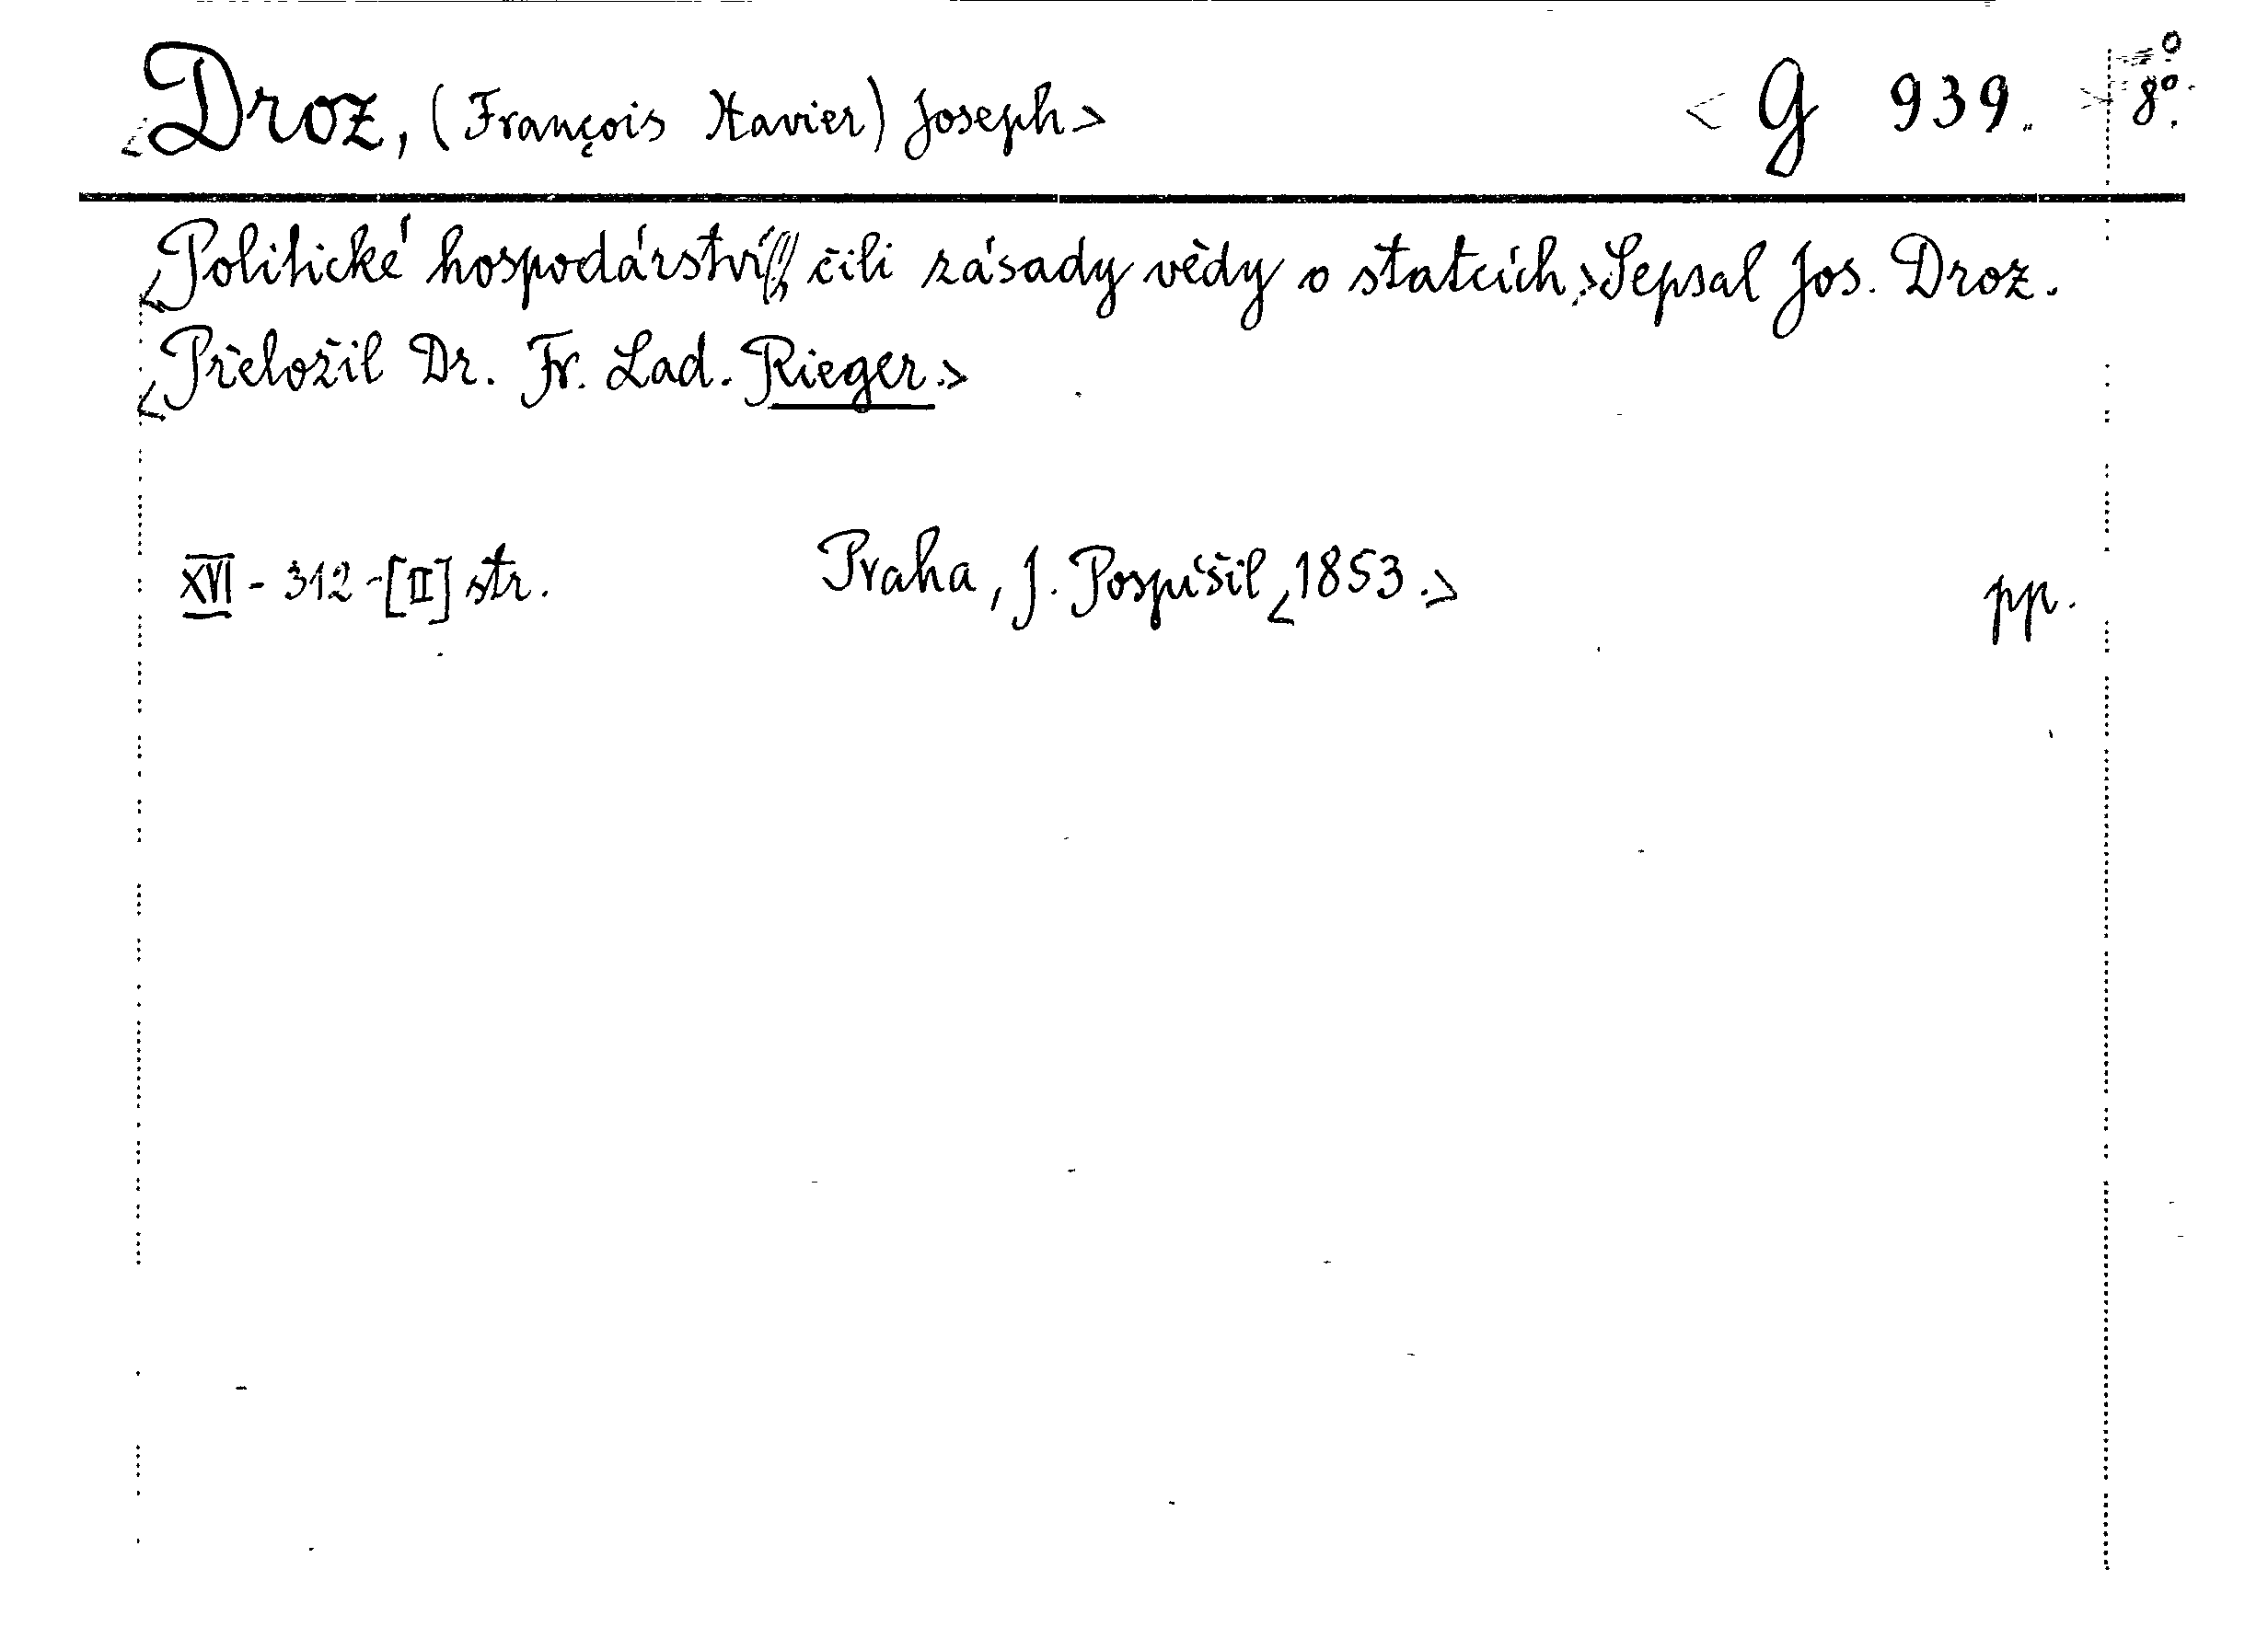 <Droz, (François Xavier) Joseph> <G 939.> 8°.
<Politické hospodárství, čili zásady vědy o statcích.> Sepsal Jos. Droz.
<Přeložil Dr. Fr. Lad. Rieger.>
XVI - 312 - [II] str. Praha, J. Pospíšil <1853.> pp.